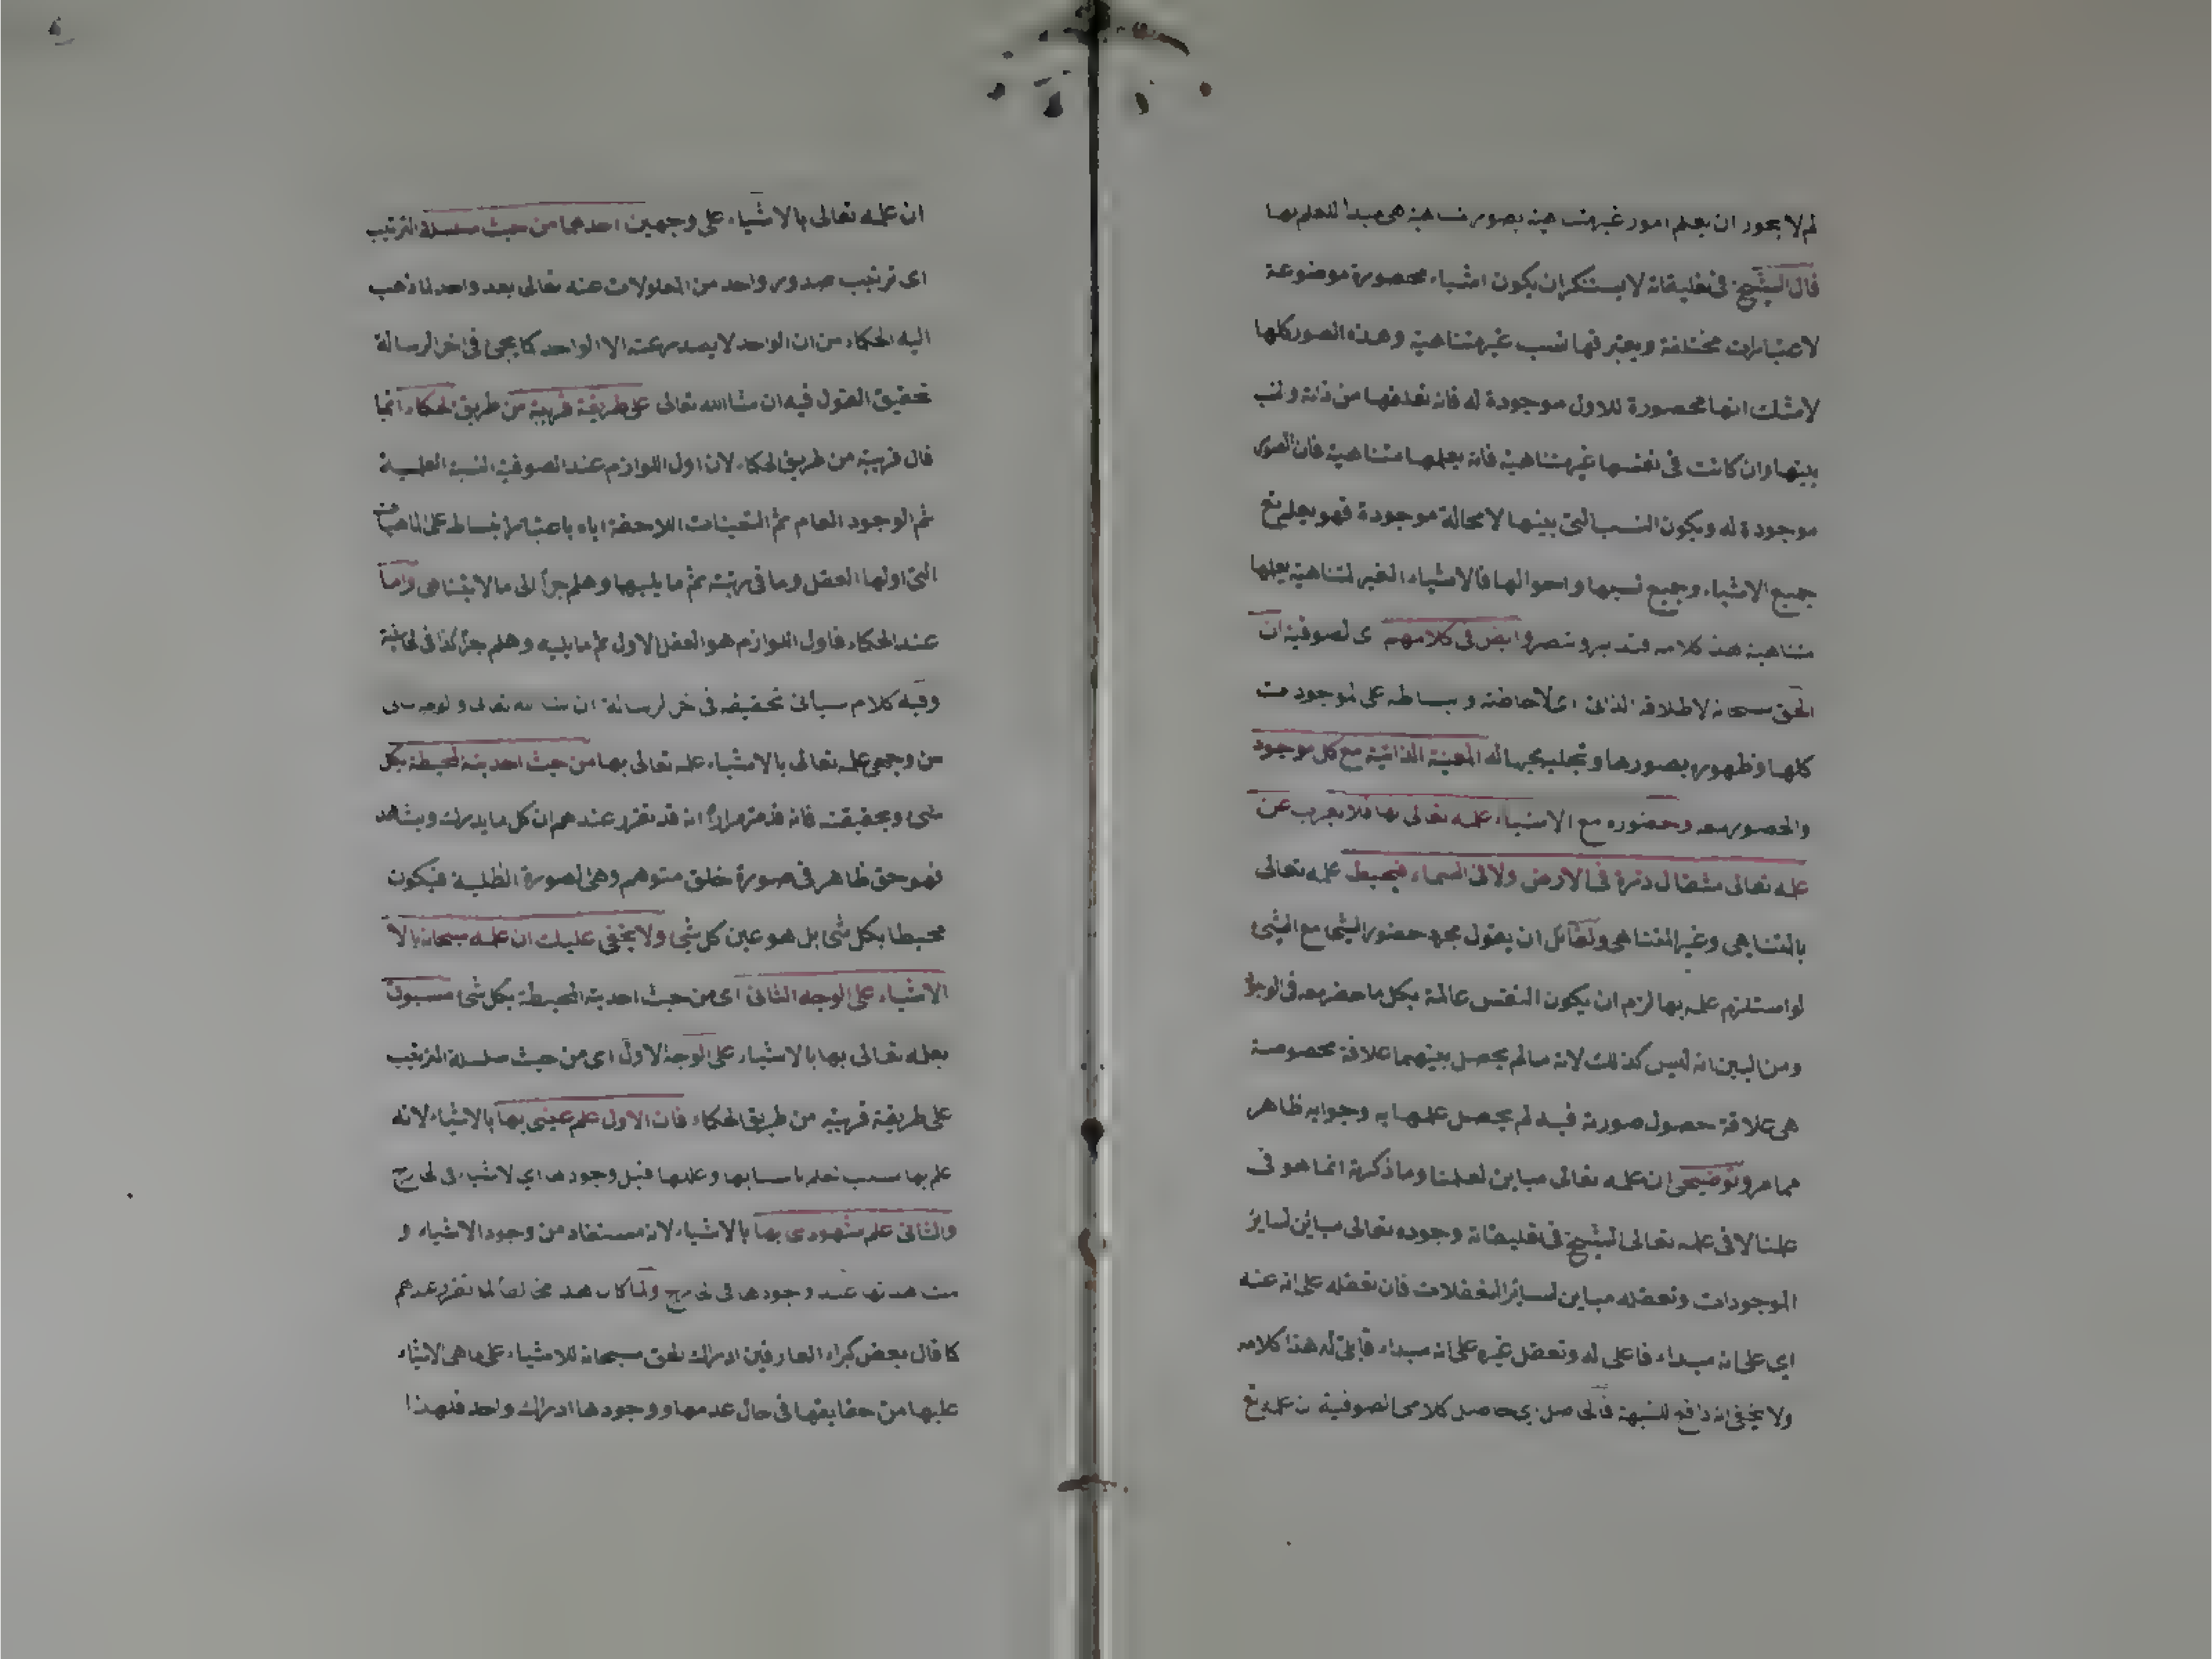 لم لا يجوز ان يعلم امور غير متناهية بصور متناهية هى مبدأ للعلم بها
قال الشيخ فى تعليقاته لا يستنكر ان يكون اشياء محصورة موضوعة
لاعتبارات مختلفة ويعتبر فيها نسب غير متناهية وهذه الصور كلها
لا شك انها محصورة للاول موجودة له فانه من ذاته ونسب
بينها وان كانت فى نفسها غير متناهية فانه يعلمها متناهية فان الصور
موجودة له ويكون النسب التى بينها لا محالة موجودة فهو يعلم تع
جميع الاشياء وجميع نسبها واحوالها فالاشياء الغير المتناهية يعلمها
متناهية هذا كلامه فتدبر وتبصر وايض فى كلامهم اى الصوفية ان
الحق سبحانه لاطلاقه الذاتى اى لاحاطته وانبساطه على الموجودات
كلها وظهوره بصورها وتجليه بها له المعية الذاتية مع كل موجود
والحضور معه وحضوره مع الاشياء علمه تعالى بها فلا يعزب عن
علمه تعالى مثقال ذرة فى الارض ولا فى السماء فيحيط علمه تعالى
بالمتناهى وغير المتناهى ولقائل ان يقول مجرد حضور الشئ مع الشئ
لو استلزم علمه بها لزم ان يكون النفس عالمة بكل ما حضر معه فى الوجود
ومن البين انه ليس كذلك لانه ما لم يحصل بينهما علاقة مخصوصة
هى علاقة حصول صورته فيه لم يحصل علمها به وجوابه ظاهر
مما مر وتوضيحه ان علمه تعالى مباين لعلمنا وما ذكرته انما هو فى
علمنا لا فى علمه تعالى الشيخ فى تعليقاته وجوده تعالى مباين لساير
الموجودات وتعقله مباين لساير التعقلات فان تعقله على انه عنه
اي على انه مبداء فاعلى له وتعقل غيره على انه مبداء قابلى له هذا كلامه
ولا يخفى انه دافع للشبهة فالحاصل اى حاصل كلامى الصوفية ان علمه تع
ان علمه تعالى بالاشياء على وجهين احدهما من حيث سلسلة الترتيب
اى ترتيب صدور واحد من المعلولات عنه تعالى بعد واحد لما ذهب
اليه الحكماء من ان الواحد لا يصدر عنه الا الواحد كما يجئ فى اخر الرسالة
تحقيق القول فيه ان شاء الله تعالى على طريقة قريبة من طريق الحكماء انما
قال قريبة من طريق الحكماء لان اول اللوازم عند الصوفية النسبة العلمية
ثم الوجود العام ثم التعينات اللاحقة اياه باعتبار انبساطه على الماهيات
التى اولها العقل وما فى رتبته ثم ما يليها وهلم جرا الى ما لا يتناهى واما
عند الحكماء فاول اللوازم هو العقل الاول ثم ما يليه وهلم جرا كذا فى الحاشية
وفيه كلام سيأتى تحقيقه فى اخر الرسالة ان شاء الله تعالى والوجه الثانى
من وجهى علمه تعالى بالاشياء علمه تعالى بها من حيث احديته المحيطة بكل
شئ وبحقيقته فانه قد مر مرارا انه قد تقرر عندهم ان كل ما يدرك ويشاهد
فهو حق ظاهر فى صورة خلق متوهم وهى الصورة الظلية فيكون
محيطا بكل شئ بل هو عين كل شئ ولا يخفى عليك ان علمه سبحانه بالا
الاشياء على الوجه الثانى اى من حيث احديته المحيطة بكل شئ مسبوق
بعلمه تعالى بها بالاشياء على الوجه الاول اى من حيث سلسلة الترتيب
على طريقة قريبة من طريق الحكماء فان الاول علم غيبى بها بالاشياء لانه
علم بها بسبب العلم باسبابها وعللها قبل وجودها اي الاشياء فى الخارج
والثانى علم شهودى بها بالاشياء لانه مستفاد من وجود الاشياء و
مشاهدتها عند وجودها فى الخارج ولما كان هذا مخالفا لما تقرر عندهم
كما قال بعض كبراء العارفين ادراك الحق سبحانه للاشياء على ما هى الاشياء
عليها من حقايقها فى حال عدمها ووجودها ادراك واحد فلهذا